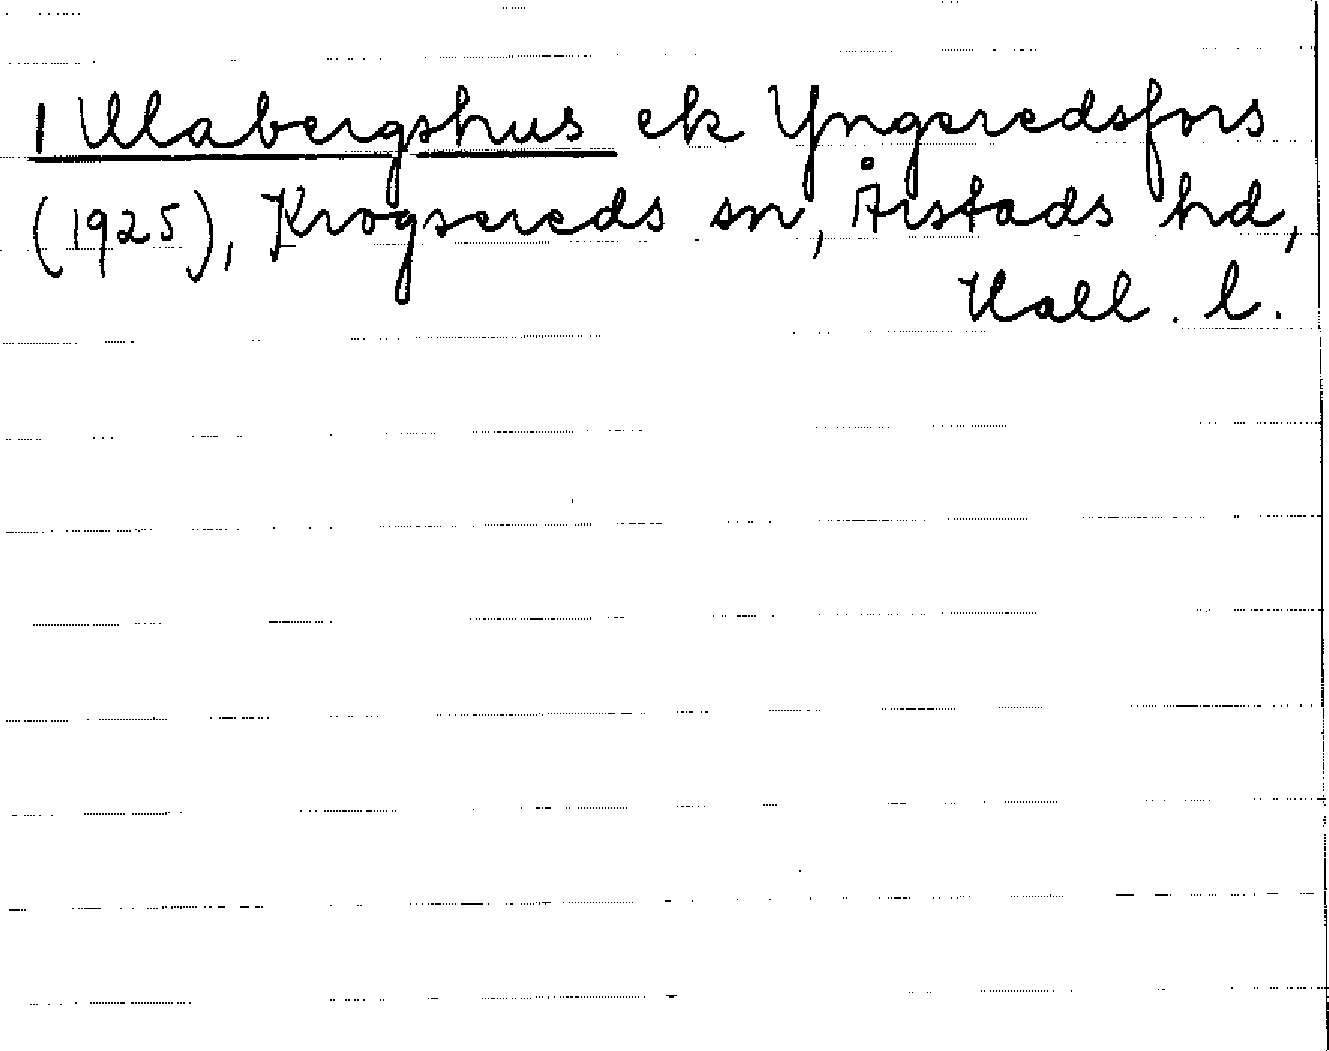 1 Ulabergshus ek Yngeredsfors
(1925), Krogsereds sn, Årstads hd,
Hall. l.